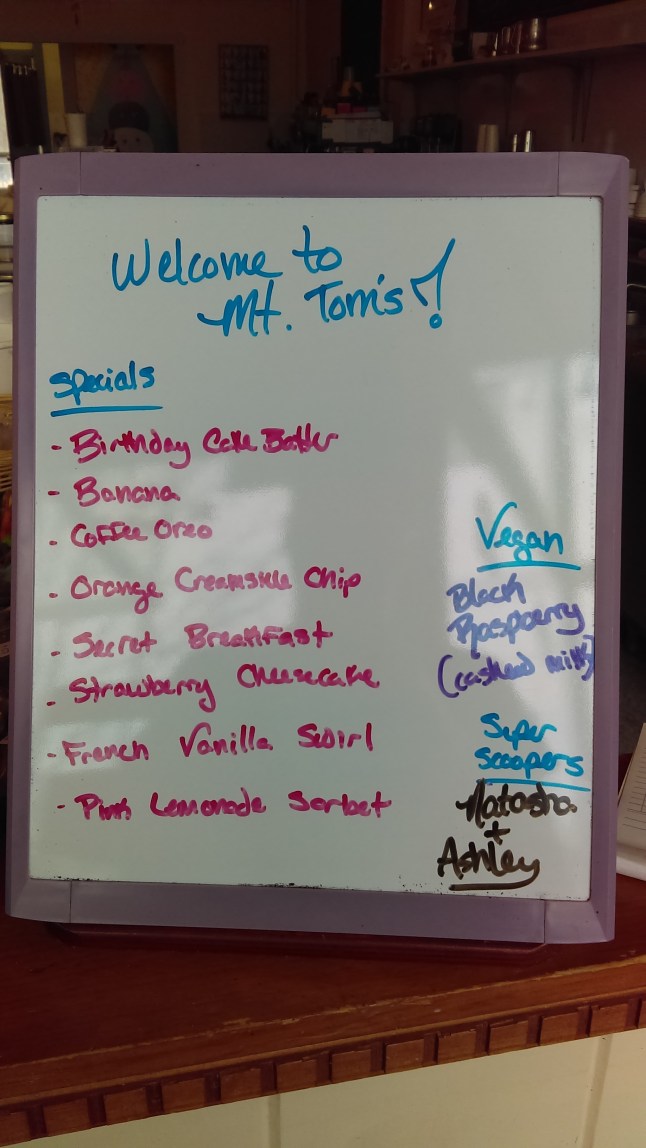 Welcome to
Mt. Tom's!
Specials
- Birthday Cake Batter
- Banana
- Coffee Oreo
- Orange Creamsicle Chip
- Secret Breakfast
- Strawberry Cheesecake
- French Vanilla Swirl
- Pink Lemonade Sorbet
Vegan
Black
Raspberry
(cashew milk)
Super
Scoopers
Natasha
+
Ashley